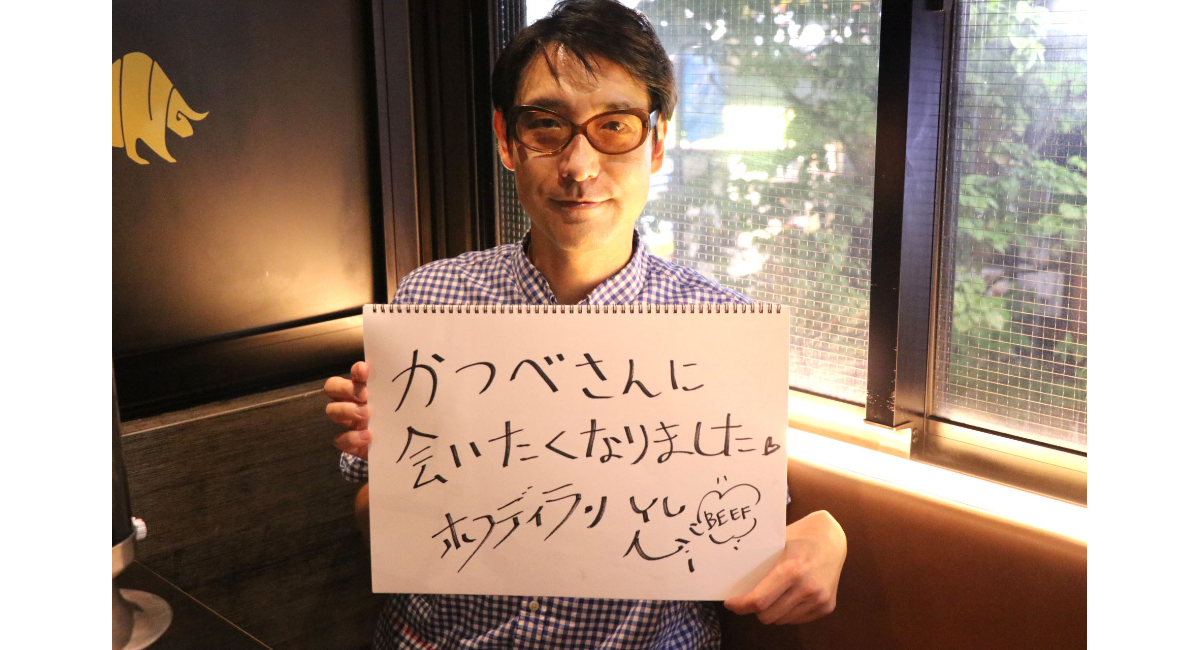 かつべさんに
会いたくなりました
ホフディラン
BEEF